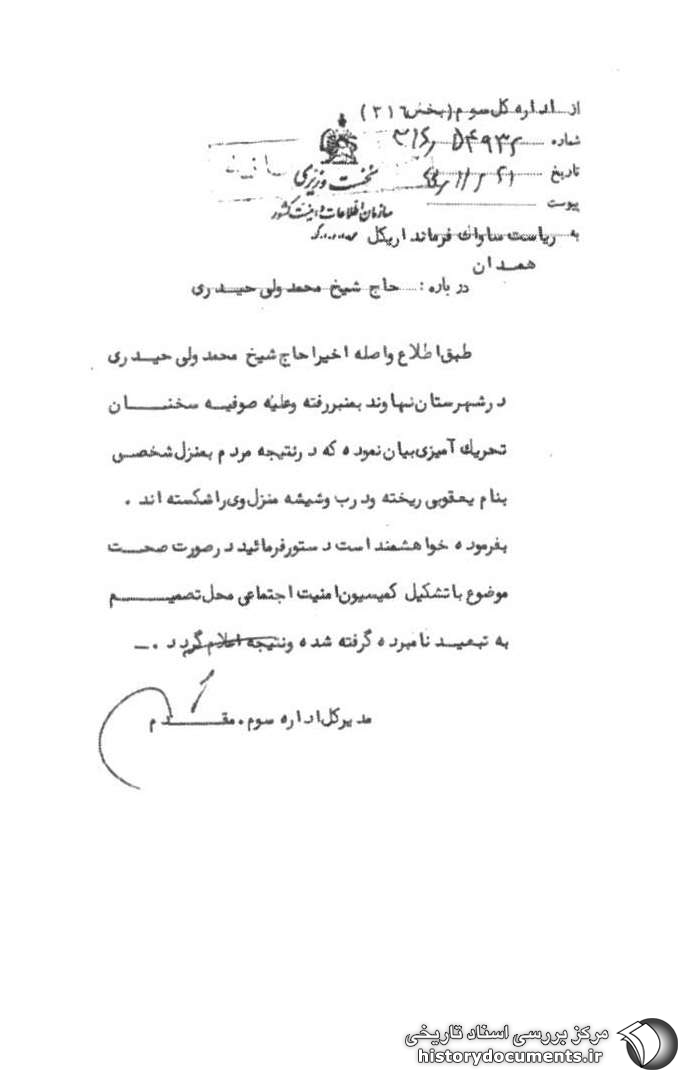 از اداره کل سوم (بخش ۳۱٦)
شماره ۵۴۹۳۲ / ۳۱۶
نخست وزیری
تاریخ
سازمان اطلاعات و امنیت کشور
پیوست
به ریاست ساواک فرمانداریکل
همدان
درباره : حاج شیخ محمدولی حیدری
طبق اطلاع واصله اخیرا حاج شیخ محمدولی حیدری
در شهرستان نهاوند بمنبر رفته و علیه صوفیه سخنان
تحریک آمیزی بیان نموده که در نتیجه مردم بمنزل شخصی
بنام یعقوبی ریخته و درب و شیشه منزل وی را شکسته اند .
بفرموده خواهشمند است دستور فرمائید در صورت صحت
موضوع با تشکیل کمیسیون امنیت اجتماعی محل تصمیم
به تبعید نامبرده گرفته شده و نتیجه اعلام گردد .ــ
مدیرکل اداره سوم . مقدم
مرکز بررسی اسناد تاریخی
historydocuments.ir